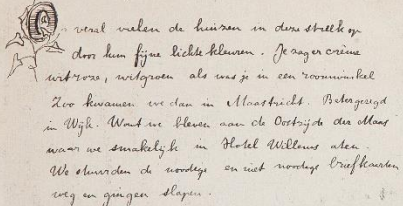 Overal vielen de huizen in deze streek op
door hun fijne lichte kleuren. Je zag er crême
witroze, witgroen als was je in een roomwinkel
Zoo kwamen we dan in Maastricht. Beter gezegd
in Wijk. Want we bleven aan de Oostzijde der Maas
waar we smakelijk in Hotel Willems aten.
We stuurden de noodige en niet noodige briefkaarten
weg en gingen slapen.